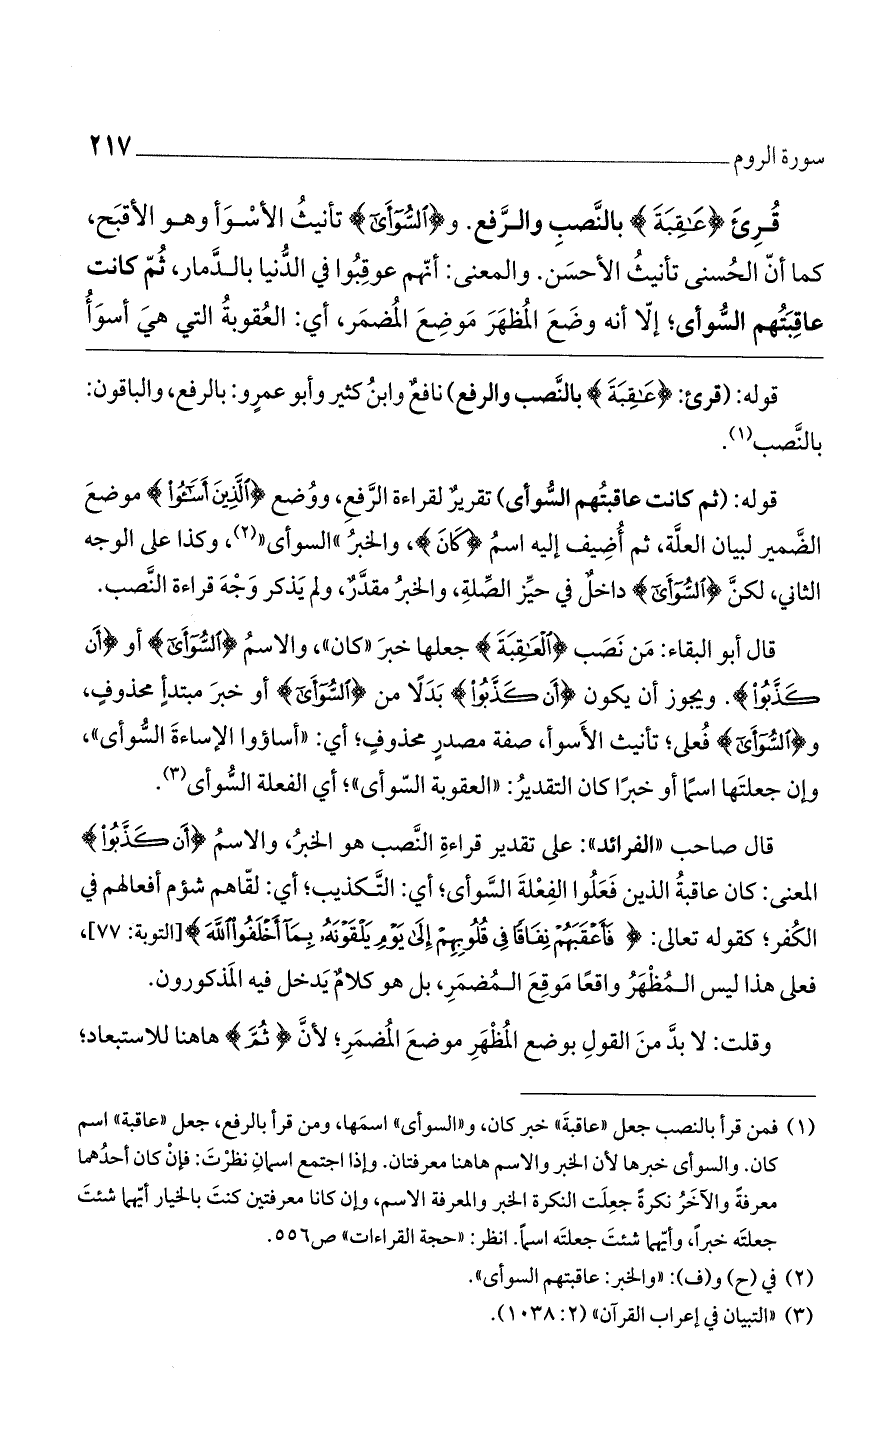 سورة الروم ٢١٧
قُرِئَ ﴿عَـٰقِبَةَ﴾ بالنَّصبِ والـرَّفع. و﴿ٱلسُّوٓأَىٰٓ﴾ تأنيثُ الأسْـوَأ وهـو الأقبَح،
كما أنّ الحُسنى تأنيثُ الأحسَن. والمعنى: أنّهم عوقِبُوا في الدُّنيا بالـدَّمار، ثُمّ كانت
عاقِبَتُهم السُّوأى؛ إلّا أنه وضَعَ المُظهَرَ مَوضِعَ المُضمَر، أي: العُقوبةُ التي هيَ أسوَأُ
قوله: (قرئ: ﴿عَـٰقِبَةَ﴾ بالنَّصب والرفع) نافعٌ وابنُ كثير وأبو عمرٍو: بالرفع، والباقون:
بالنَّصب(١).
قوله: (ثم كانت عاقبتُهم السُّوأى) تقريرٌ لقراءة الرَّفعِ، ووُضع ﴿ٱلَّذِينَ أَسَـٰٓـُٔوا۟﴾ موضعَ
الضَّمير لبيان العلَّة، ثم أُضِيف إليه اسمُ ﴿كَانَ﴾، والخبرُ «السوأى»(٢)، وكذا على الوجه
الثاني، لكنَّ ﴿ٱلسُّوٓأَىٰٓ﴾ داخلٌ في حيِّز الصِّلةِ، والخبرُ مقدَّرٌ، ولم يَذكر وَجْهَ قراءة النَّصب.
قال أبو البقاء: مَن نَصَب ﴿ٱلْعَـٰقِبَةَ﴾ جعلها خبرَ «كان»، والاسمُ ﴿ٱلسُّوٓأَىٰٓ﴾ أو ﴿أَن
كَذَّبُوا۟﴾. ويجوز أن يكون ﴿أَن كَذَّبُوا۟﴾ بَدَلًا من ﴿ٱلسُّوٓأَىٰٓ﴾ أو خبرَ مبتدأٍ محذوفٍ،
و﴿ٱلسُّوٓأَىٰٓ﴾ فُعلى؛ تأنيث الأَسوأ، صفة مصدرٍ محذوفٍ؛ أي: «أساؤوا الإساءةَ السُّوأى»،
وإن جعلتَها اسمًا أو خبرًا كان التقديرُ: «العقوبة السّوأى»؛ أي الفعلة السُّوأى(٣).
قال صاحب «الفرائد»: على تقدير قراءةِ النَّصب هو الخبرُ، والاسمُ ﴿أَن كَذَّبُوا۟﴾
المعنى: كان عاقبةُ الذين فَعَلُوا الفِعْلةَ السَّوأى؛ أي: التَّكذيب؛ أي: لقّاهم شؤم أفعالهم في
الكُفر؛ كقوله تعالى: ﴿فَأَعْقَبَهُمْ نِفَاقًا فِى قُلُوبِهِمْ إِلَىٰ يَوْمِ يَلْقَوْنَهُۥ بِمَآ أَخْلَفُوا۟ ٱللَّهَ﴾ [التوبة: ٧٧]،
فعلى هذا ليس الـمُظْهَرُ واقعًا مَوقِعَ الـمُضمَرِ، بل هو كلامٌ يَدخل فيه المَذكورون.
وقلت: لا بدَّ منَ القولِ بوضع المُظْهَرِ موضعَ المُضمَرِ؛ لأنَّ ﴿ثُمَّ﴾ هاهنا للاستبعاد؛
(١) فمن قرأ بالنصب جعل «عاقبةَ» خبر كان، و«السوأى» اسمَها، ومن قرأ بالرفع، جعل «عاقبة» اسم
كان. والسوأى خبرها لأن الخبر والاسم هاهنا معرفتان. وإذا اجتمع اسمانِ نظرْتَ: فإنْ كان أحدُهما
معرفةً والآخَرُ نكرةً جعِلَت النكرة الخبر والمعرفة الاسم، وإن كانا معرفتين كنتَ بالخيار أيّهما شئتَ
جعلتَه خبراً، وأيّهما شئتَ جعلتَه اسماً. انظر: «حجة القراءات» ص٥٥٦.
(٢) في (ح) و(ف): «والخبر: عاقبتهم السوأى».
(٣) «التبيان في إعراب القرآن» (٢: ١٠٣٨).